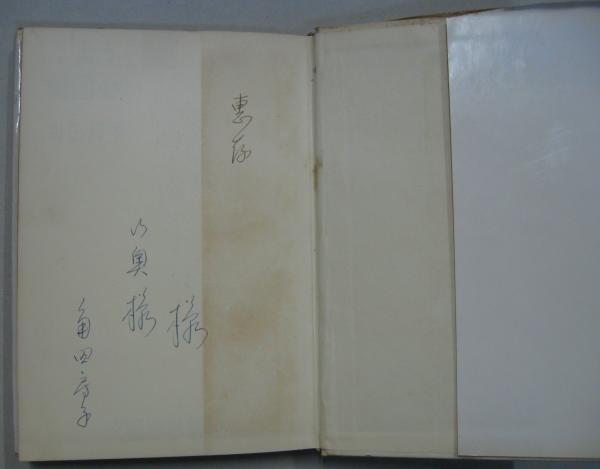 惠存
様
奥様
角田房子